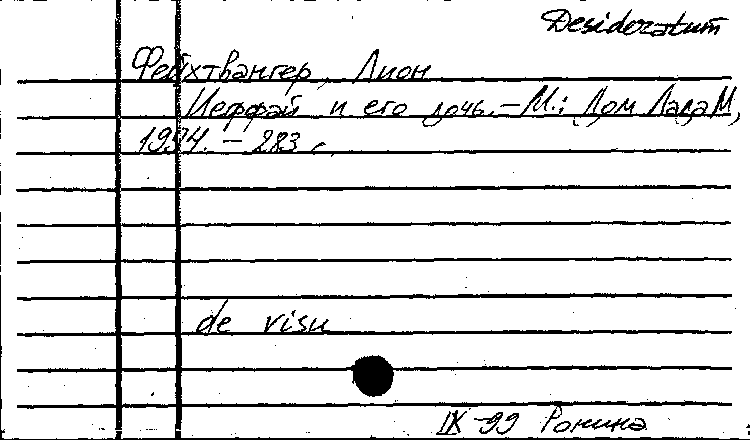 Desideratum
Фейхтвангер, Лион
Иеффай и его дочь. – М.: Дом Лада М,
1994. – 283 с.
de visu
IX-99 Ронина